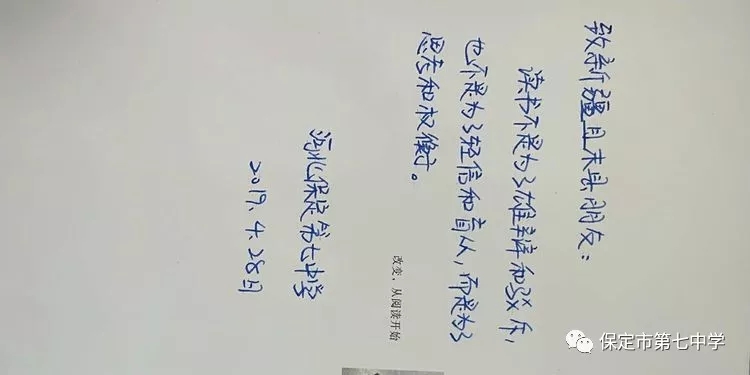 致新疆且末县朋友：
读书不是为了雄辩和驳斥，
也不是为了轻信和盲从，而是为了
思考和权衡。
河北保定第七中学
2019.4.28日
改变，从阅读开始
保定市第七中学